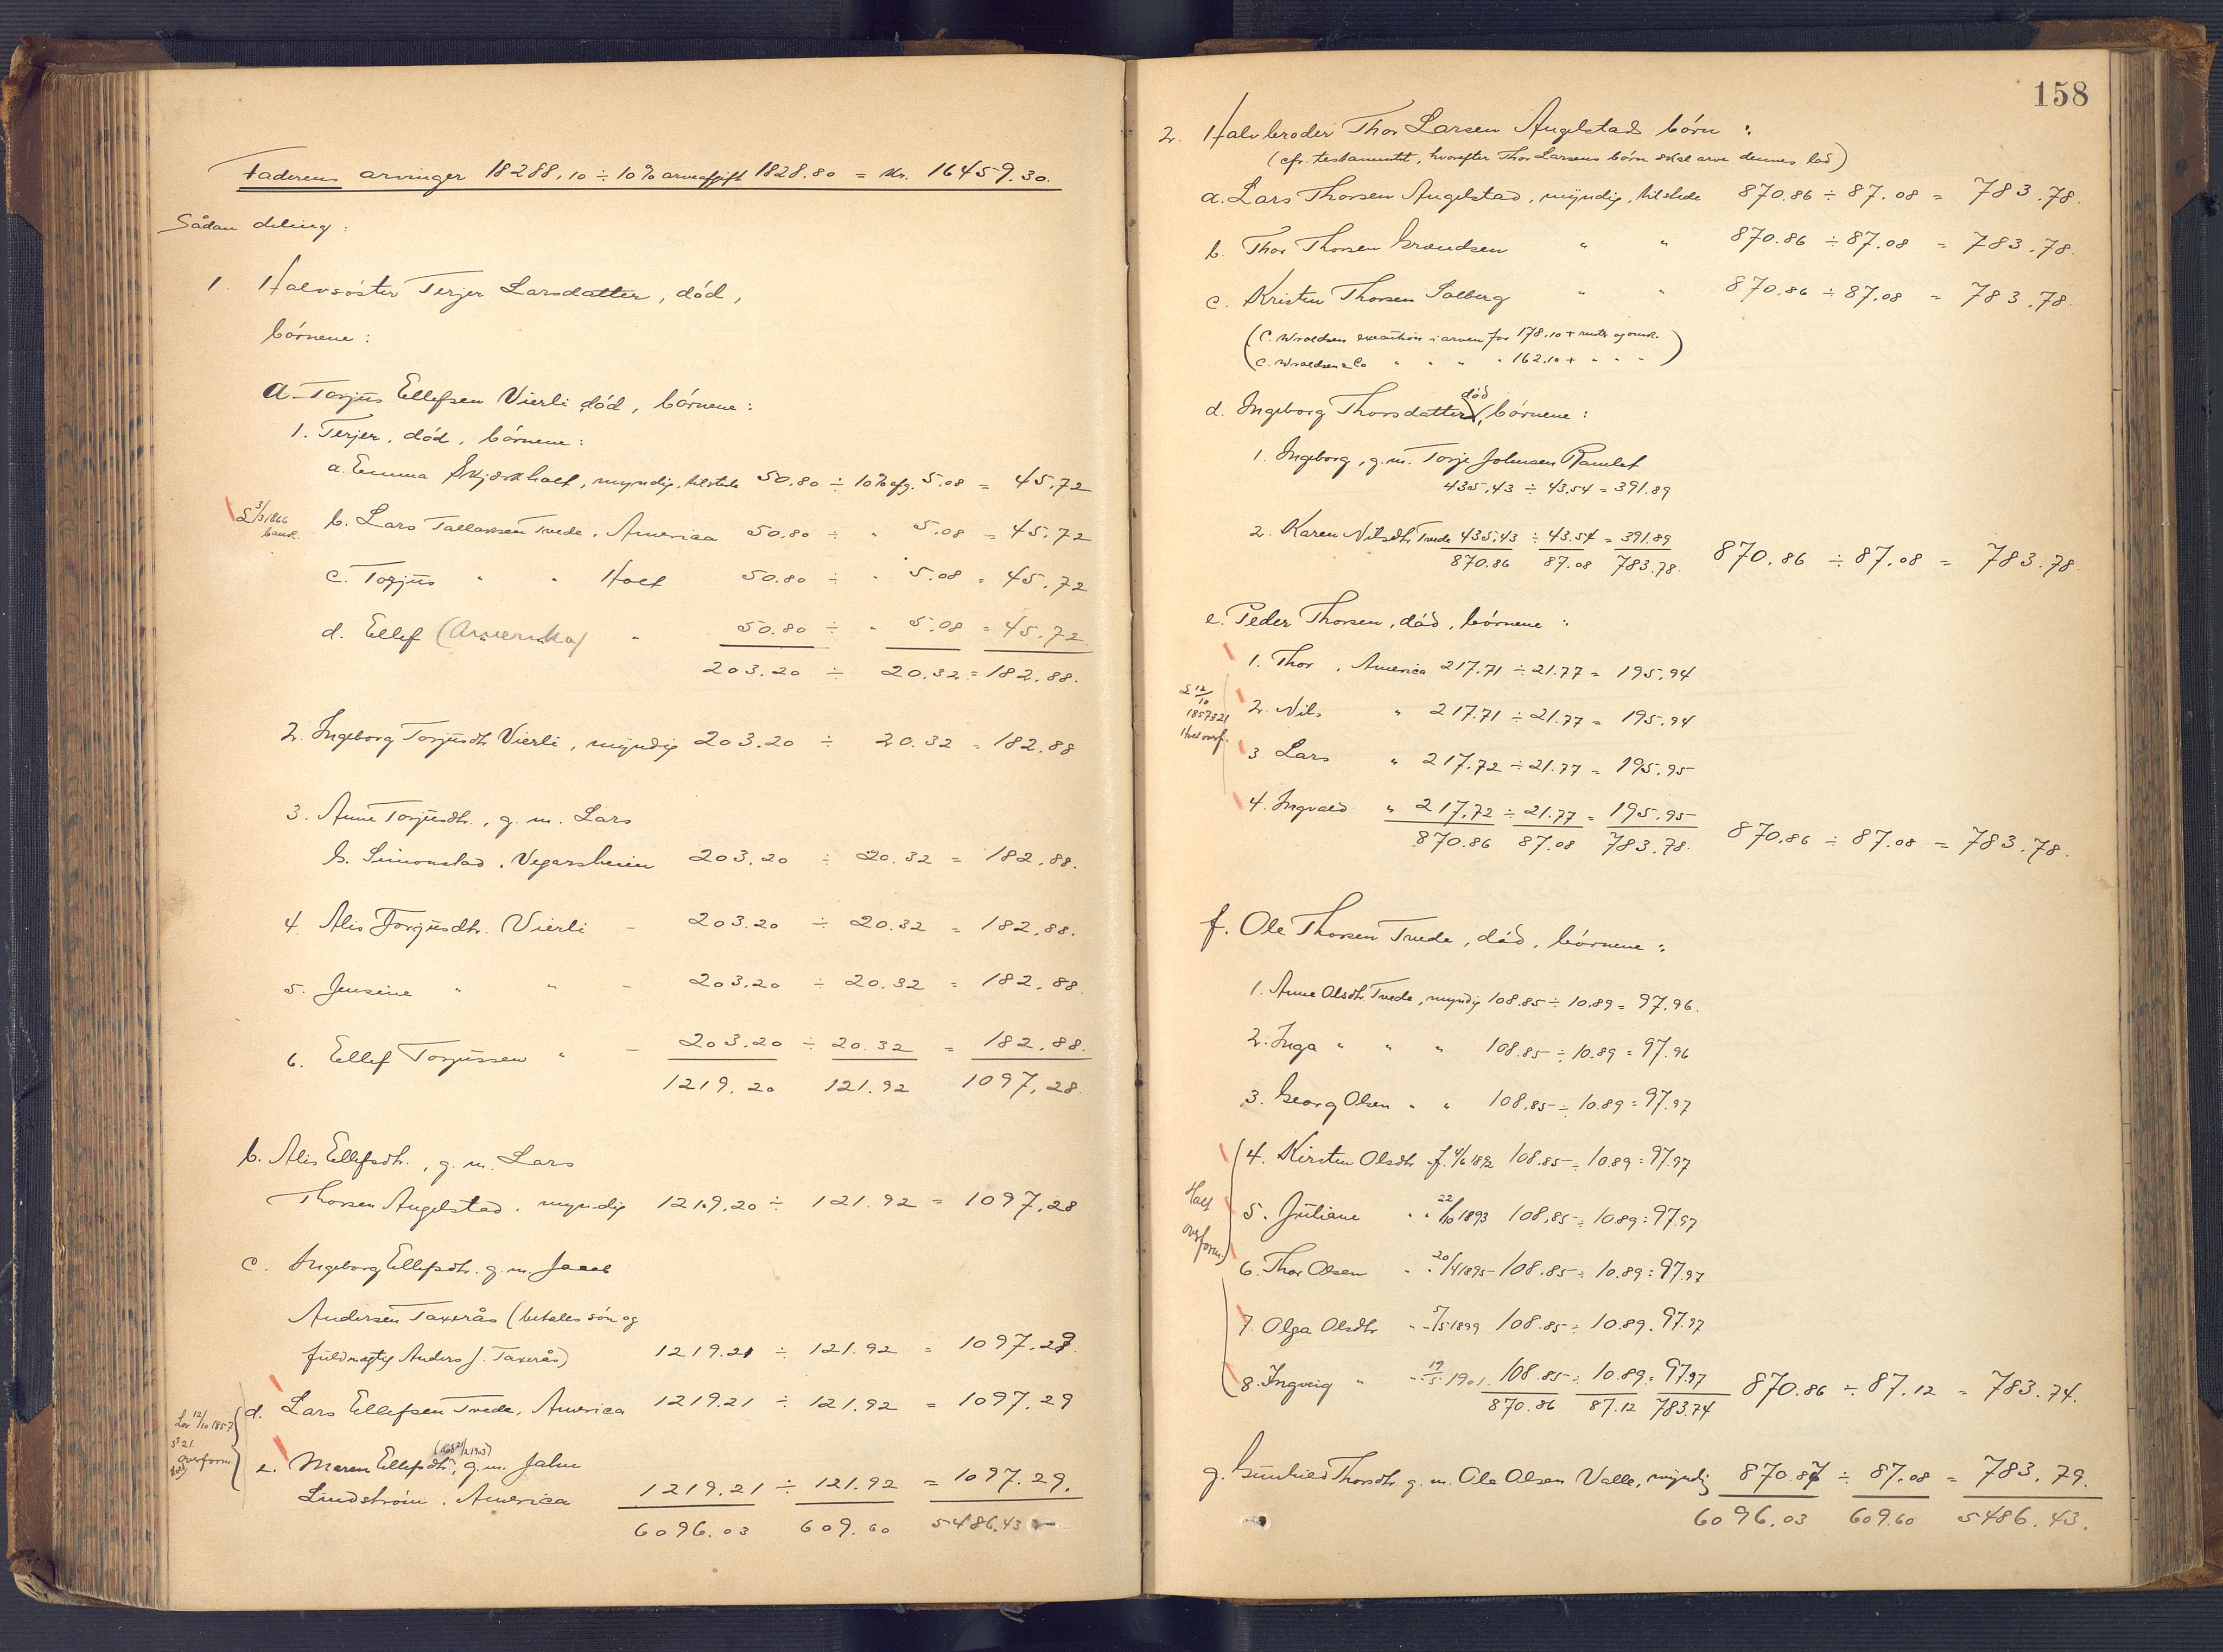 Faderens arvinger 18288,10 ÷ 10% arveafgift 1828.80 = Kr. 16459.30.
Sådan deling:
1. Halvsøster Terjer Larsdatter, død,
børnene:
a. Torjus Ellefsen Vierli død, børnene:
1. Terjer, død, børnene:
a. Emma Skjærkholt, myndig, tilstede 50.80 ÷ 10% afg. 5.08 = 45.72
b. Lars Tallaksen Tvede, America 50.80 ÷ " 5.08 = 45.72
c. Torjus " " Holt 50.80 ÷ " 5.08 = 45.72
d. Ellef (Amerika) " 50.80 ÷ " 5.08 = 45.72
203.20 ÷ 20.32 = 182.88.
2. Ingeborg Torjusdtr Vierli, myndig 203.20 ÷ 20.32 = 182.88
3. Anne Torjusdtr., g. m. Lars
Simonstad, Vegarsheien 203.20 ÷ 20.32 = 182.88.
4. Alis Torjusdtr. Vierli - 203.20 ÷ 20.32 = 182.88.
5. Jensine " " - 203.20 ÷ 20.32 = 182.88.
6. Ellef Torjussen " - 203.20 ÷ 20.32 = 182.88.
1219.20 121.92 1097.28.
b. Alis Ellefsdtr., g. m. Lars
Thorsen Angelstad, myndig 1219.20 ÷ 121.92 = 1097.28
c. Ingeborg Ellefsdtr. g. m. Jacob
Andersen Taxerås (betales søn og
fuldmægtig Anders J. Taxerås) 1219.21 ÷ 121.92 = 1097.29.
Lov 12/10 1857
§ 21.
overform.
Holt
d. Lars Ellefsen Tvede, America 1219.21 ÷ 121.92 = 1097.29
e. Maren Ellefsdtr, (død 21/2 1903) g. m. John
Lindstrøm, America 1219.21 ÷ 121.92 = 1097.29.
6096.03 609.60 5486.43
158
2. Halvbroder Thor Larsen Angelstads børn:
(cfr. testamentet, hvorefter Thor Larsens børn skal arve dennes lod)
a. Lars Thorsen Angelstad, myndig, tilstede 870.86 ÷ 87.08 = 783.78.
b. Thor Thorsen " " 870.86 ÷ 87.08 = 783.78.
c. Kristen Thorsen Solberg " " 870.86 ÷ 87.08 = 783.78.
(C. Wroldsen execution i arven for 178.10 + rente og omk.
C. Wroldsen & Co " " " " 162.10 + " " ")
d. Ingeborg Thorsdatter, død, børnene:
1. Ingeborg, g. m. Torje Johnsen Ramlet
435.43 ÷ 43.54 = 391.89
2. Karen Nilsdtr Tvede 435.43 ÷ 43.54 = 391.89
870.86 87.08 783.78. 870.86 ÷ 87.08 = 783.78.
e. Peder Thorsen, død, børnene:
1. Thor, America 217.71 ÷ 21.77 = 195.94
2. Nils " 217.71 ÷ 21.77 = 195.94
3. Lars " 217.72 ÷ 21.77 = 195.95
4. Ingvald " 217.72 ÷ 21.77 = 195.95
870.86 87.08 783.78. 870.86 ÷ 87.08 = 783.78.
f. Ole Thorsen Tvede, død, børnene:
1. Anne Olsdtr. Tvede, myndig 108.85 ÷ 10.89 = 97.96.
2. Inga " " " 108.85 ÷ 10.89 = 97.96
3. Georg Olsen " " 108.85 ÷ 10.89 = 97.97
Holt
overform.
4. Kirsten Olsdtr f. 4/6 1892 108.85 ÷ 10.89 = 97.97
5. Juliane " " 22/10 1893 108.85 ÷ 10.89 = 97.97
6. Thor Olsen " " 20/4 1895 108.85 ÷ 10.89 = 97.97
7. Olga Olsdtr " " 5/5 1899 108.85 ÷ 10.89 = 97.97
8. Ingveig " " 19/5 1901. 108.85 ÷ 10.89 = 97.97
870.86 87.12 783.74 870.86 ÷ 87.12 = 783.74.
g. Gunhild Thorsdtr. g. m. Ole Olsen Valle, myndig 870.87 ÷ 87.08 = 783.79.
6096.03 609.60 5486.43.